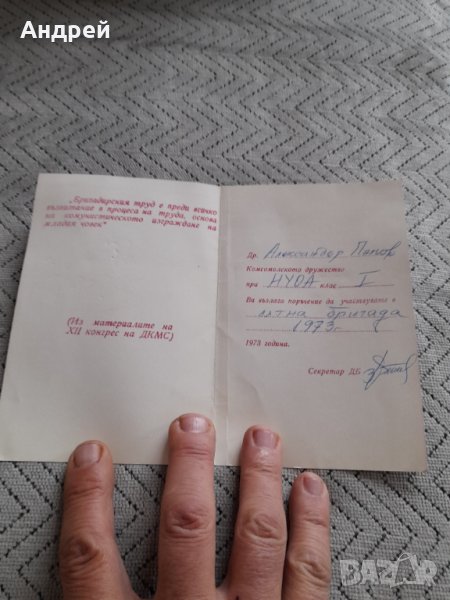 Андрей
„Бригадирския труд е преди всичко
възпитание в процеса на труда, основа
на комунистическото изграждане на
младия човек"
(Из материалите на
XII конгрес на ДКМС)
Др. Александър Попов
Комсомолското дружество
при НУОА клас I
Ви възлага поръчение да участвувате в
лятна бригада
1973 г.
1973 година.
Секретар ДБ
BAZAR